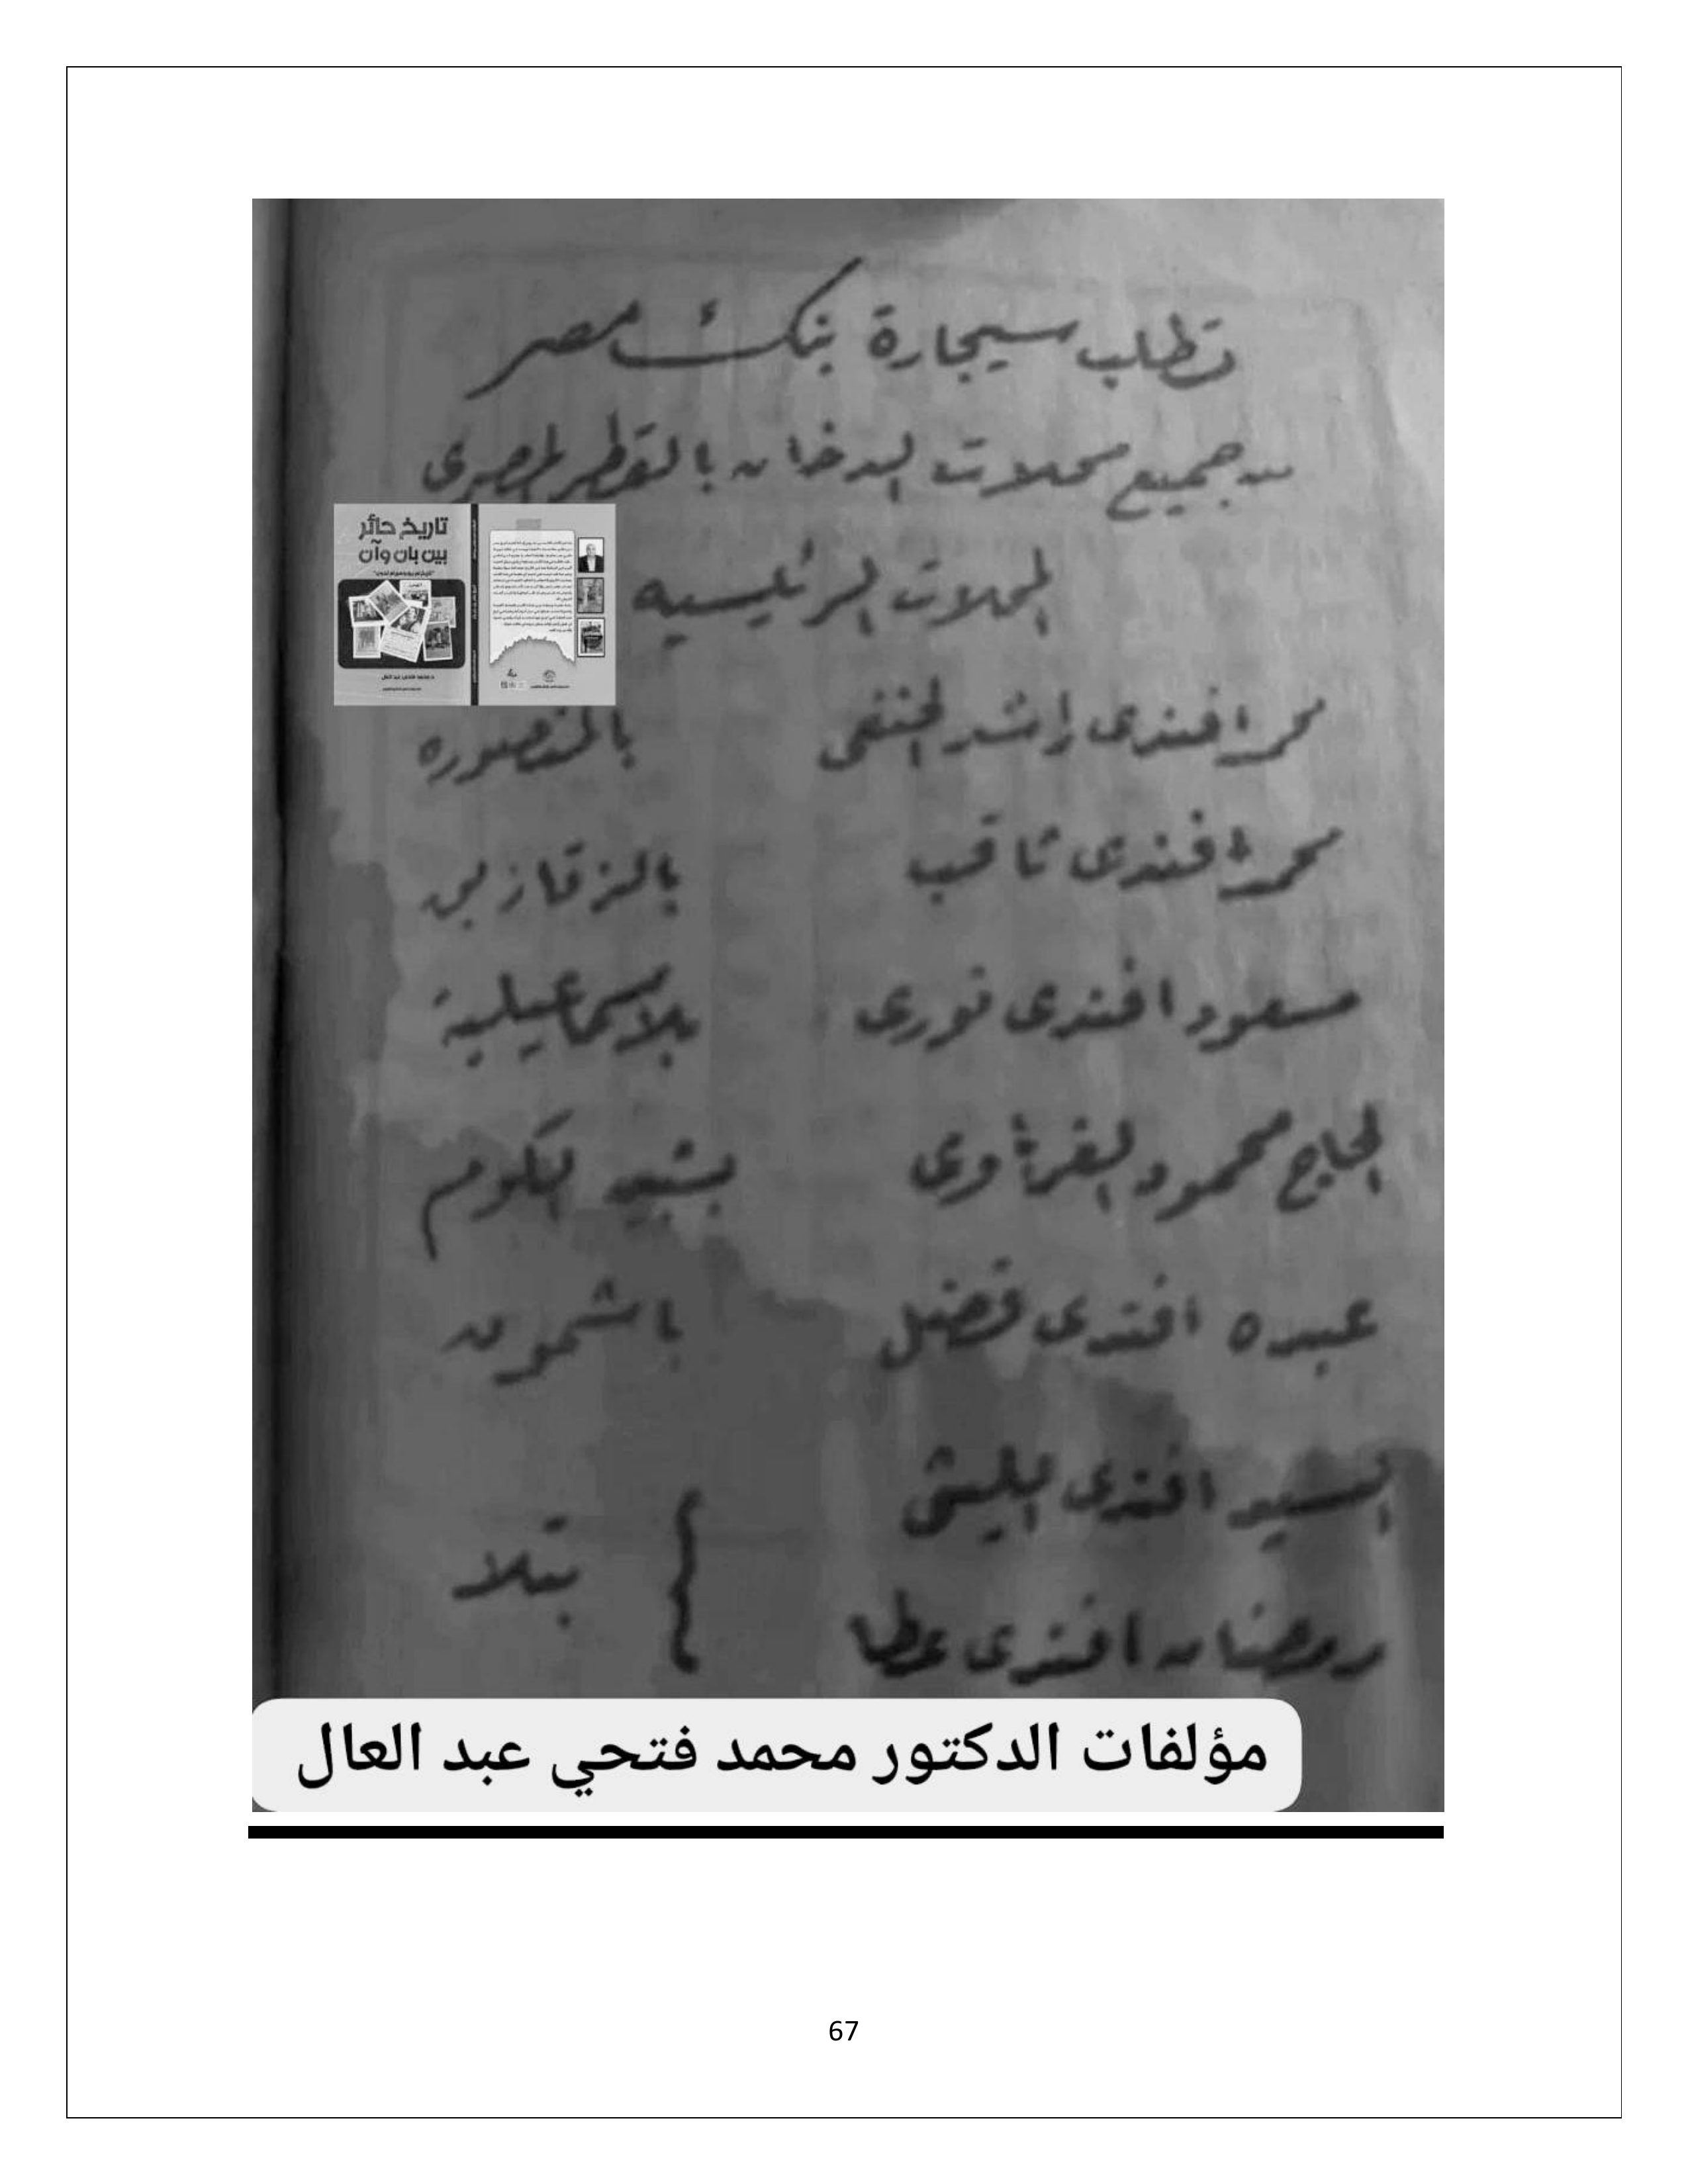 تطلب سيجارة بنك مصر
من جميع محلات الدخان بالقطر المصرى
المحلات الرئيسيه
محمد افندى راشد الحنفى بالمنصوره
محمد افندى ثاقب بالزقازيق
مسعود افندى نورى بالاسماعيلية
الحاج محمود الغزاوى بشبين الكوم
عبده افندى فضل باشمون
السيد افندى الليثى
بتلا
رمضان افندى عطا
تاريخ حائر
بين بان وآن
مؤلفات الدكتور محمد فتحي عبد العال
67